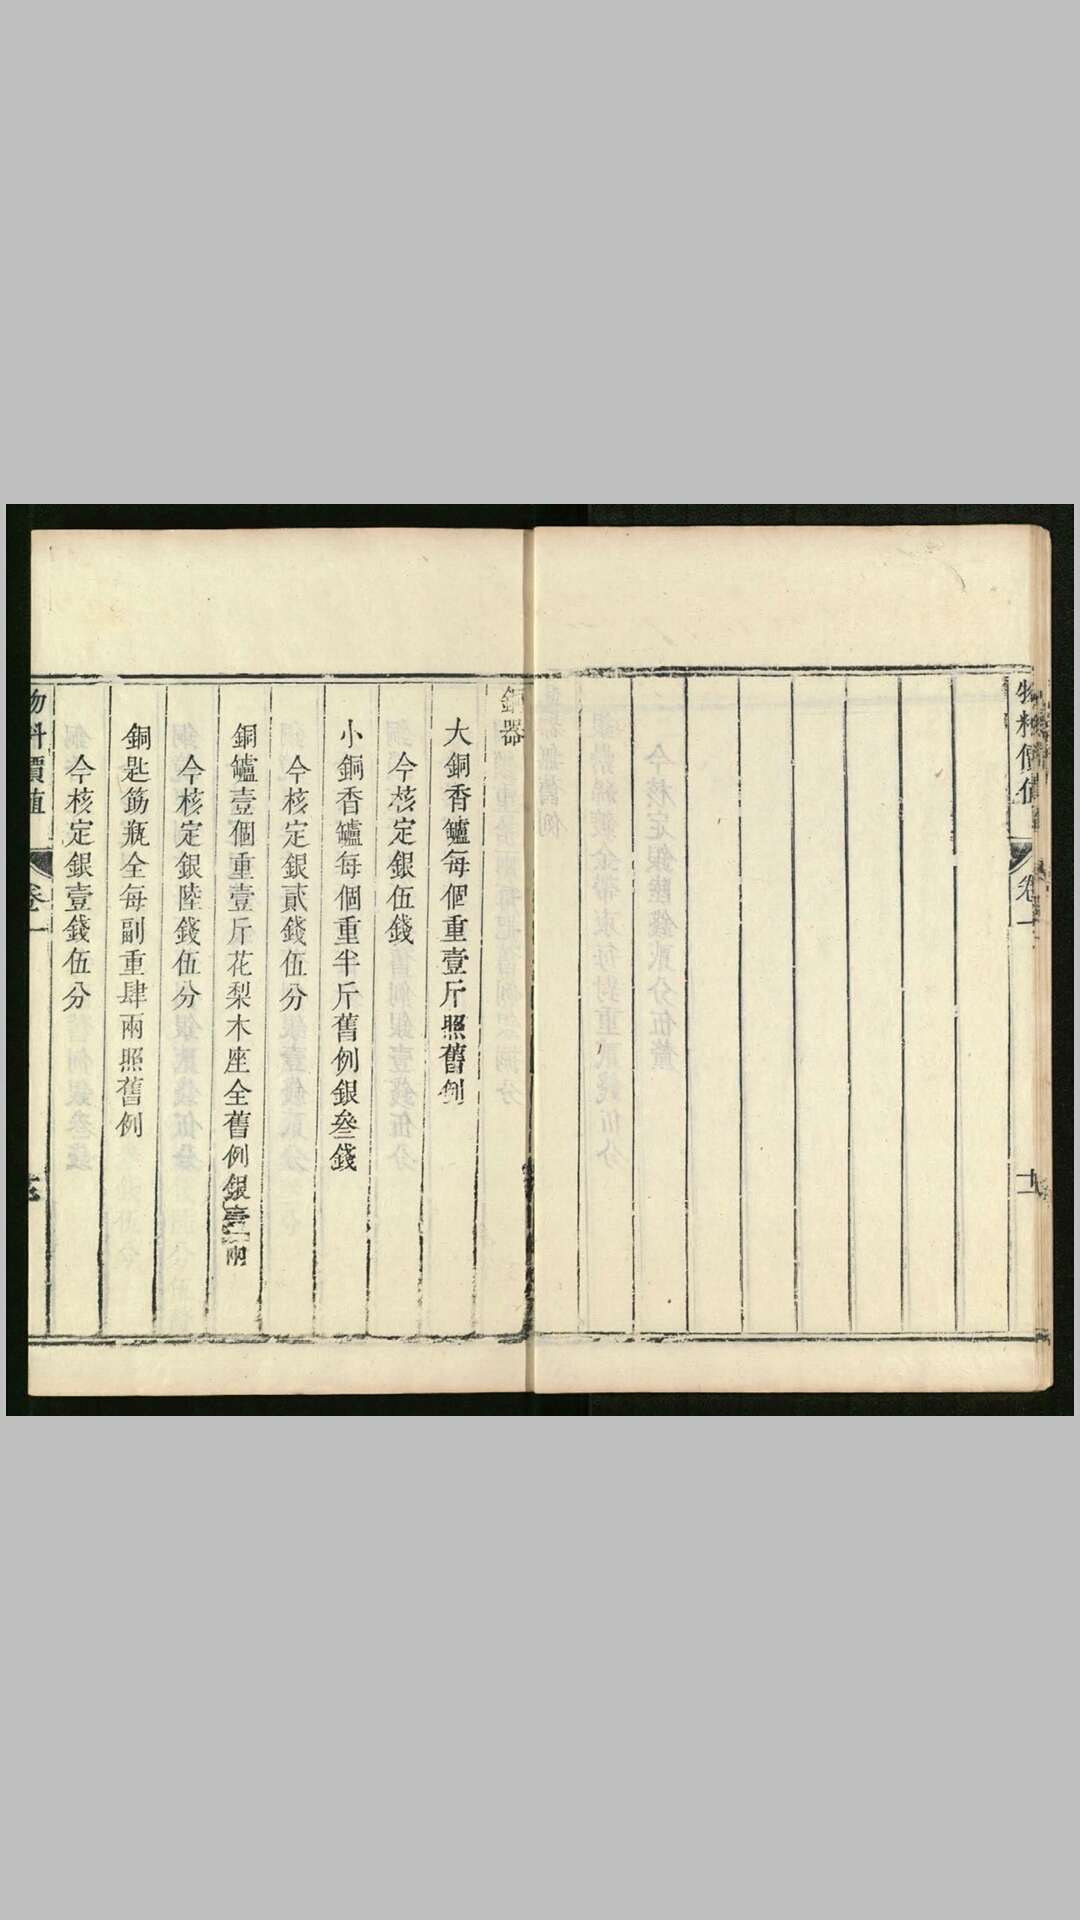 物料價值
卷一
銅器
大銅香鑪每個重壹斤照舊例
今核定銀伍錢
小銅香鑪每個重半斤舊例銀叁錢
今核定銀貳錢伍分
銅鑪壹個重壹斤花梨木座全舊例銀壹兩
今核定銀陸錢伍分
銅匙筯瓶全每副重肆兩照舊例
今核定銀壹錢伍分
物料價值
卷一